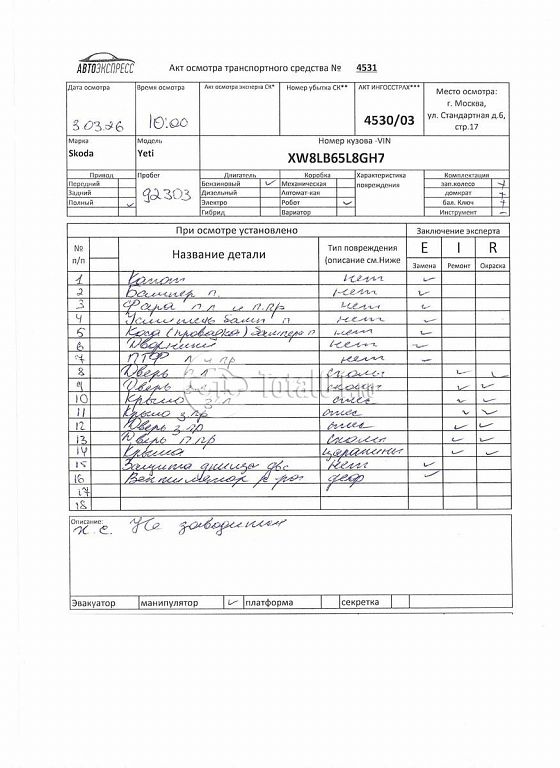 АВТОЭКСПРЕСС
Акт осмотра транспортного средства № 4531
Дата осмотра Время осмотра Акт осмотра эксперта СК* Номер убытка СК** АКТ ИНГОССТРАХ*** Место осмотра:
г. Москва,
ул. Стандартная д.6,
стр.17
3.03.26 10:00 4530/03
Марка Модель Номер кузова -VIN
Skoda Yeti XW8LB65L8GH7
Привод Пробег Двигатель Коробка Характеристика повреждения Комплектация
Передний Бензиновый ✓ Механическая зап.колесо +
Задний 92303 Дизельный Автомат-кая домкрат +
Полный ✓ Электро Робот ✓ бал. Ключ +
Гибрид Вариатор Инструмент –
При осмотре установлено Заключение эксперта
№ п/п Название детали Тип повреждения (описание см.Ниже E I R
Замена Ремонт Окраска
1 Капот нет ✓
2 Бампер п. нет ✓
3 Фара п.л и п.пр нет ✓
4 Усилитель бамп п нет ✓
5 Коса (проводка) бампера п нет ✓
6 Дворники нет ✓
7 ПТФ л и пр нет ✓
8 Дверь п л сколы ✓ ✓
9 Дверь сколы ✓ ✓
10 Крыло з л отс ✓ ✓
11 Крыло з пр отс ✓ ✓
12 Дверь з пр отс ✓ ✓
13 Дверь п пр сколы ✓ ✓
14 Крыша царапины ✓ ✓
15 Защита днища двс нет ✓
16 Вентилятор деф ✓
17
18
Total
Описание:
Н.Е. Не заводится
Эвакуатор манипулятор ✓ платформа секретка